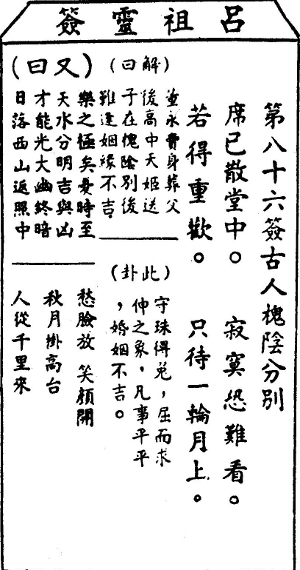 呂祖靈簽
第八十六簽古人槐陰分別
席已散堂中。 寂寞恐難看。
若得重歡。 只待一輪月上。
(解曰)
董永賣身葬父
後高中天姬送
子在槐陰別後
難逢姻緣不吉
(此卦)
守珠得兌,屈而求
伸之象,凡事平平
,婚姻不吉。
(又曰)
樂之極矣憂時至
天水分明吉與凶
才能光大幽終暗
日落西山返照中
愁臉放 笑顏開
秋月掛高台
人從千里來